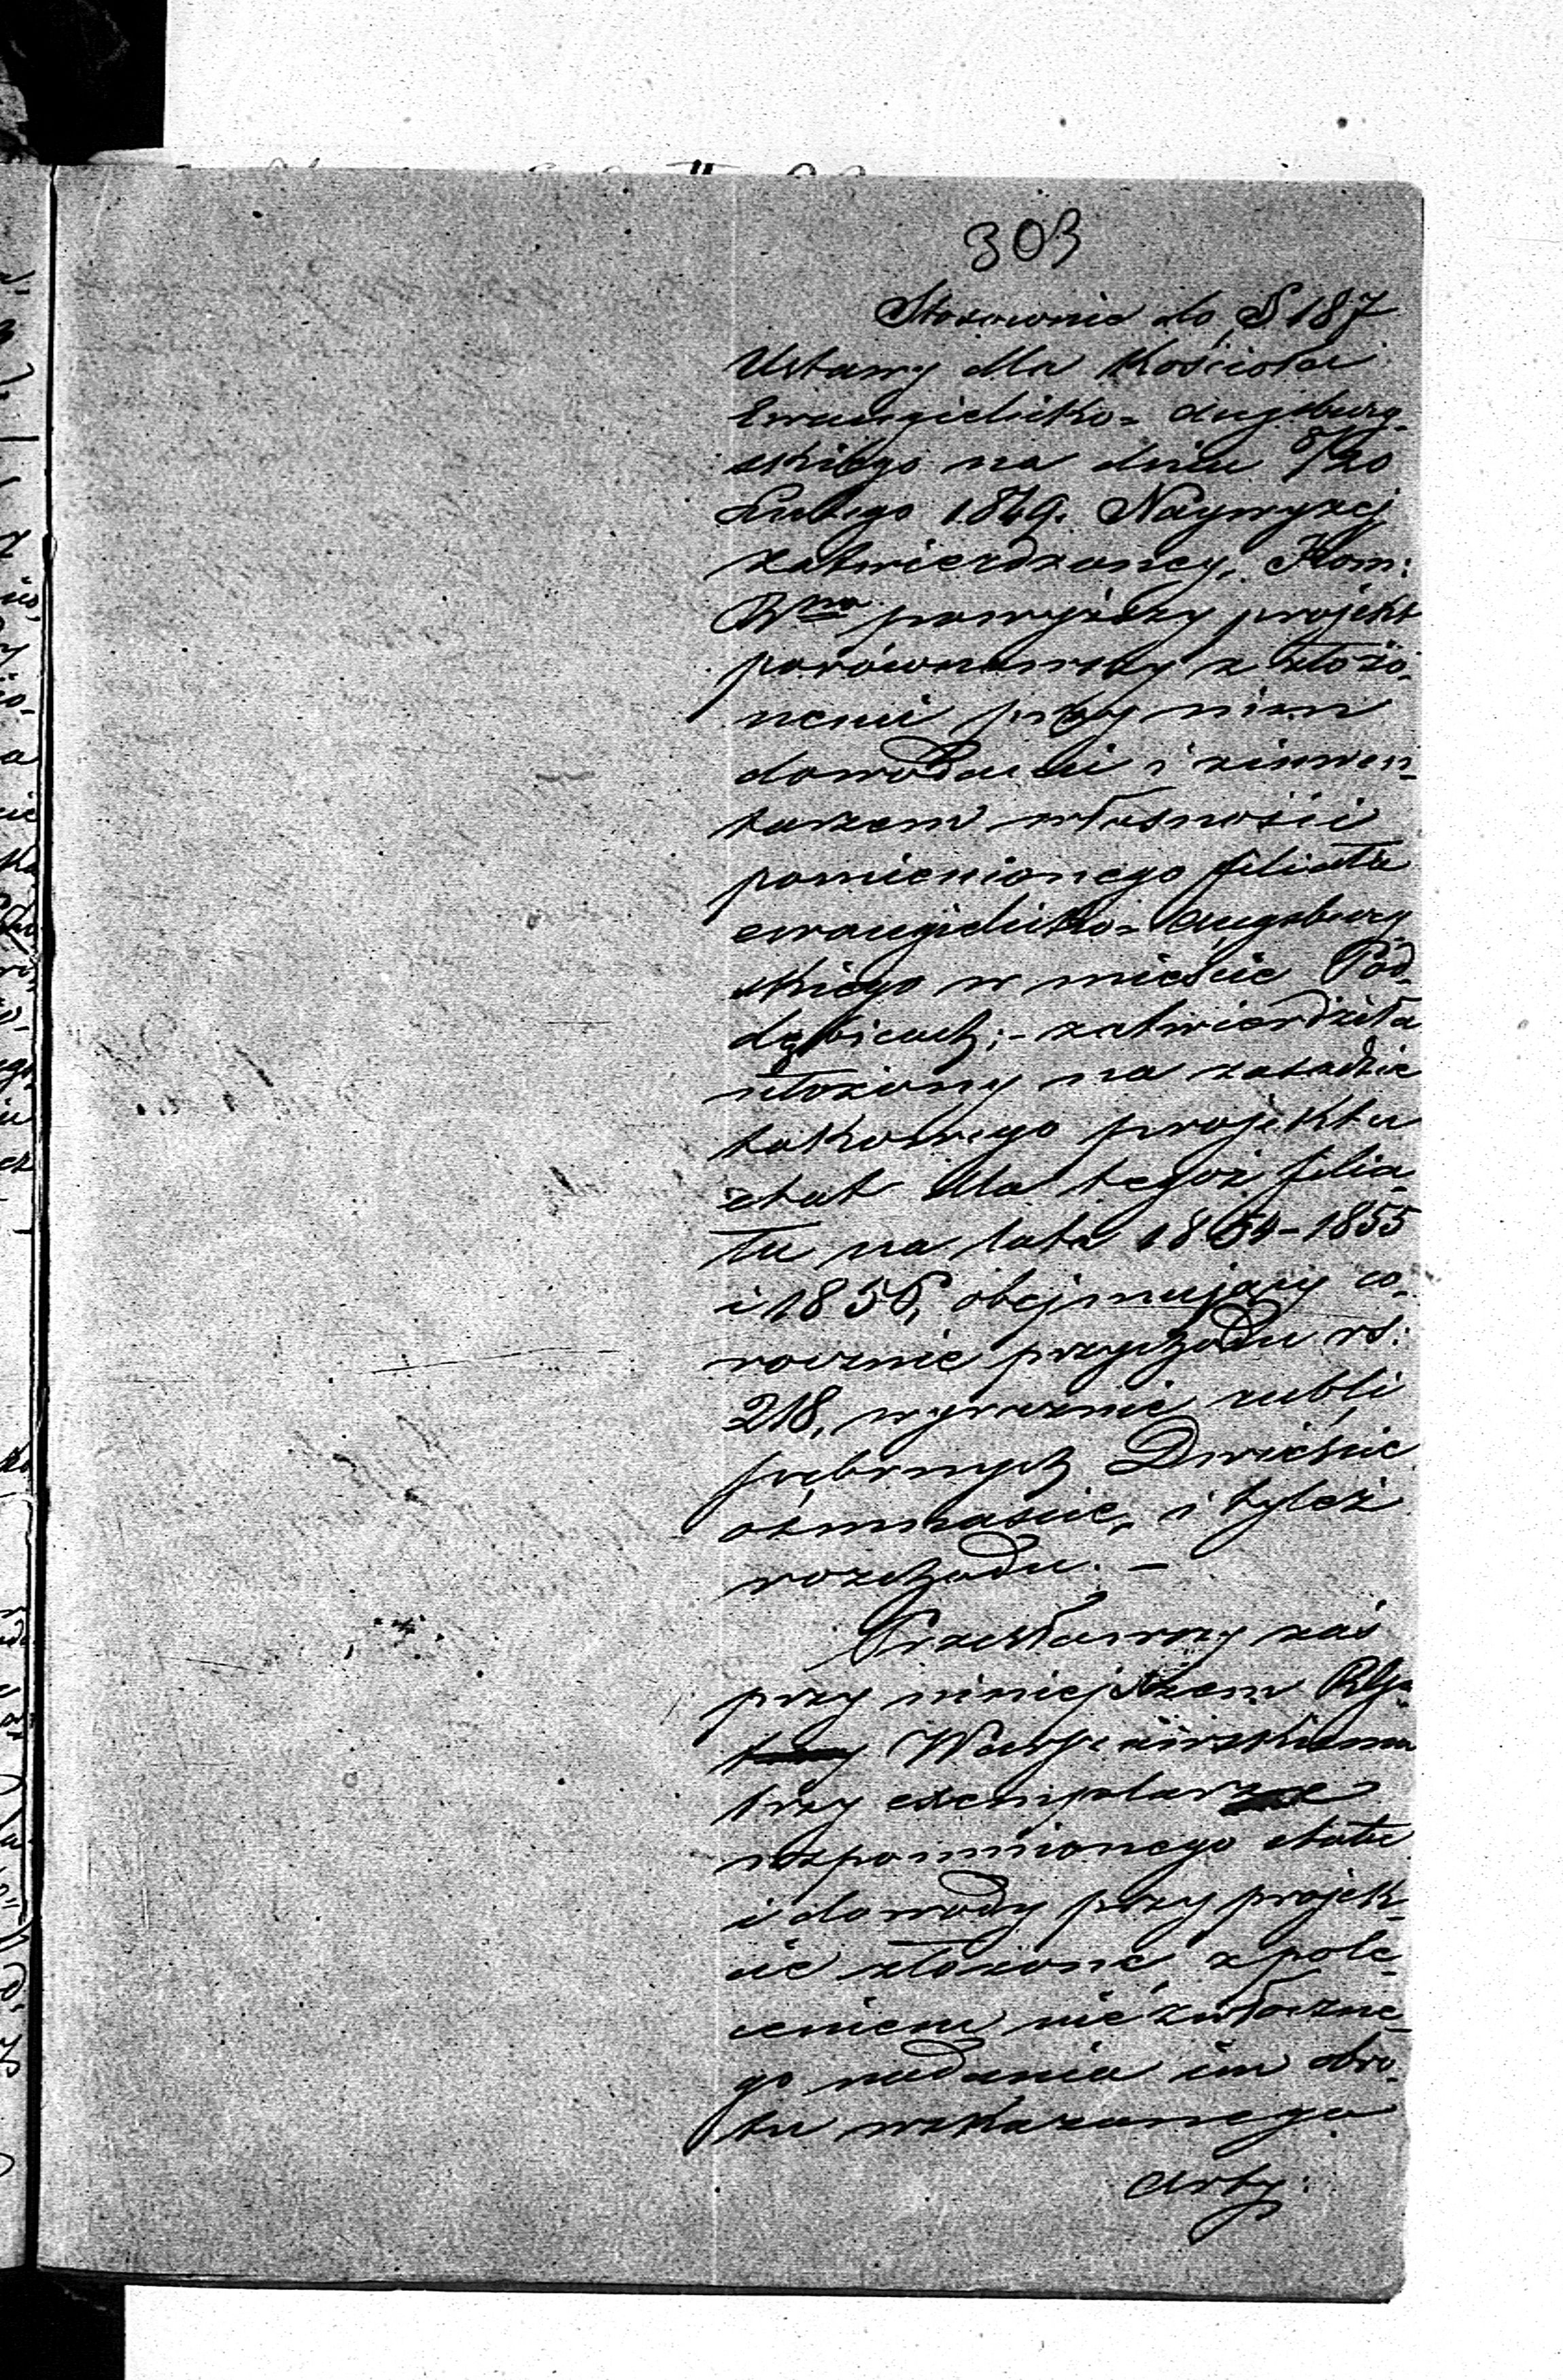 303
Stosownie do § 187
Ustawy dla Kościoła
Ewangielicko= Augsburg-
skiego na dniu 8/20
Lutego 1849. Naywyżej
zatwierdzoney, Kom:
Rwa powyższy projekt
porównawszy z złożo-
nemi przy nim
dowodami i z inwen-
tarzem własności
pomienionego filiału
ewangielicko= Augsburg-
skiego w mieście Pod-
dębicach;- zatwierdziła
ułożony na zasadzie
takowego projektu
etat dla tegoż filia-
łu na lata 1854-1855
i 1856, obejmujący co-
rocznie przychodu rs:
218, wyraźnie rubli
srebrnych Dwieście
ośmnaście, i tyleż
rozchodu. -
Przesławszy zaś
przy niniejszem
Warszawskiemu
trzy exemplarze
wspomnionego etatu
i dowody przy projek-
cie złożone, z pole-
ceniem niezwłoczne-
go nadania im obro-
tu wskazanego
Arty: